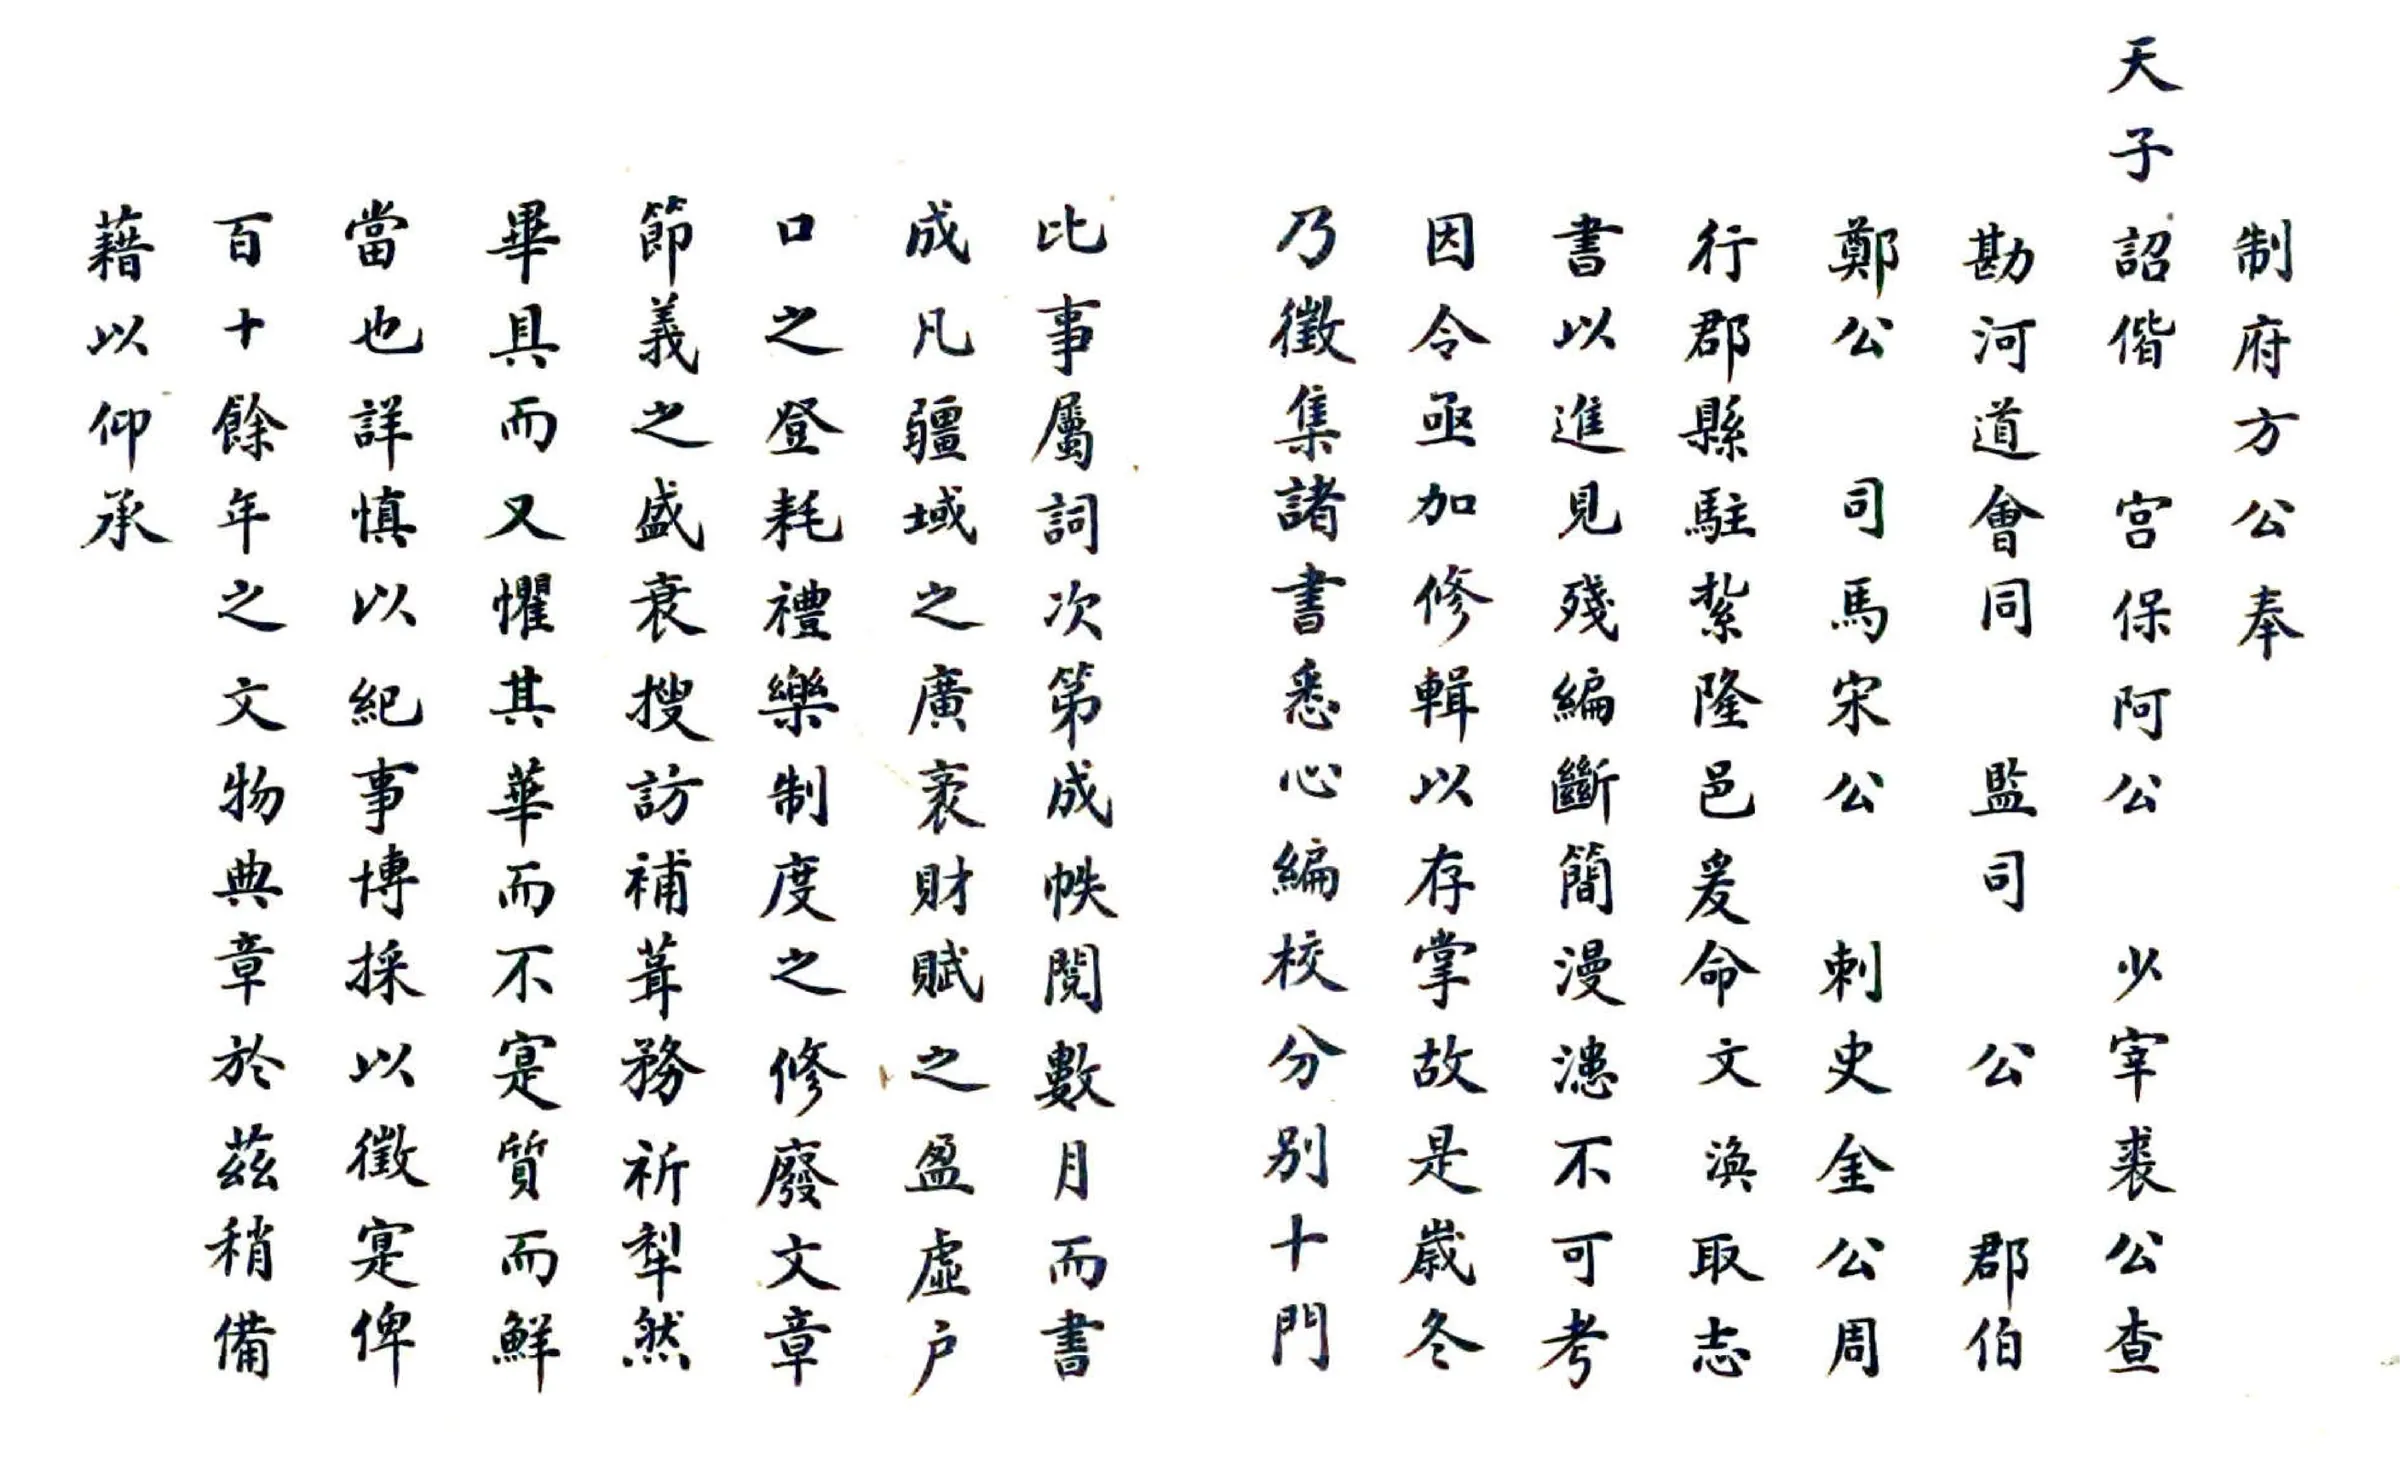 制府方公奉
天子詔偕 宫保阿公 少宰裘公查
勘河道會同 監司 公 郡伯
鄭公 司馬宋公 刺史金公周
行郡縣駐紮隆邑爰命文渙取志
書以進見殘編斷簡漫漶不可考
因令亟加修輯以存掌故是歲冬
乃徵集諸書悉心編校分別十門
比事屬詞次第成帙閱數月而書
成凡疆域之廣袤財賦之盈虛户
口之登耗禮樂制度之修廢文章
節義之盛衰搜訪補葺務祈犁然
畢具而又懼其華而不寔質而鮮
當也詳慎以紀事博採以徵寔俾
百十餘年之文物典章於茲稍備
藉以仰承